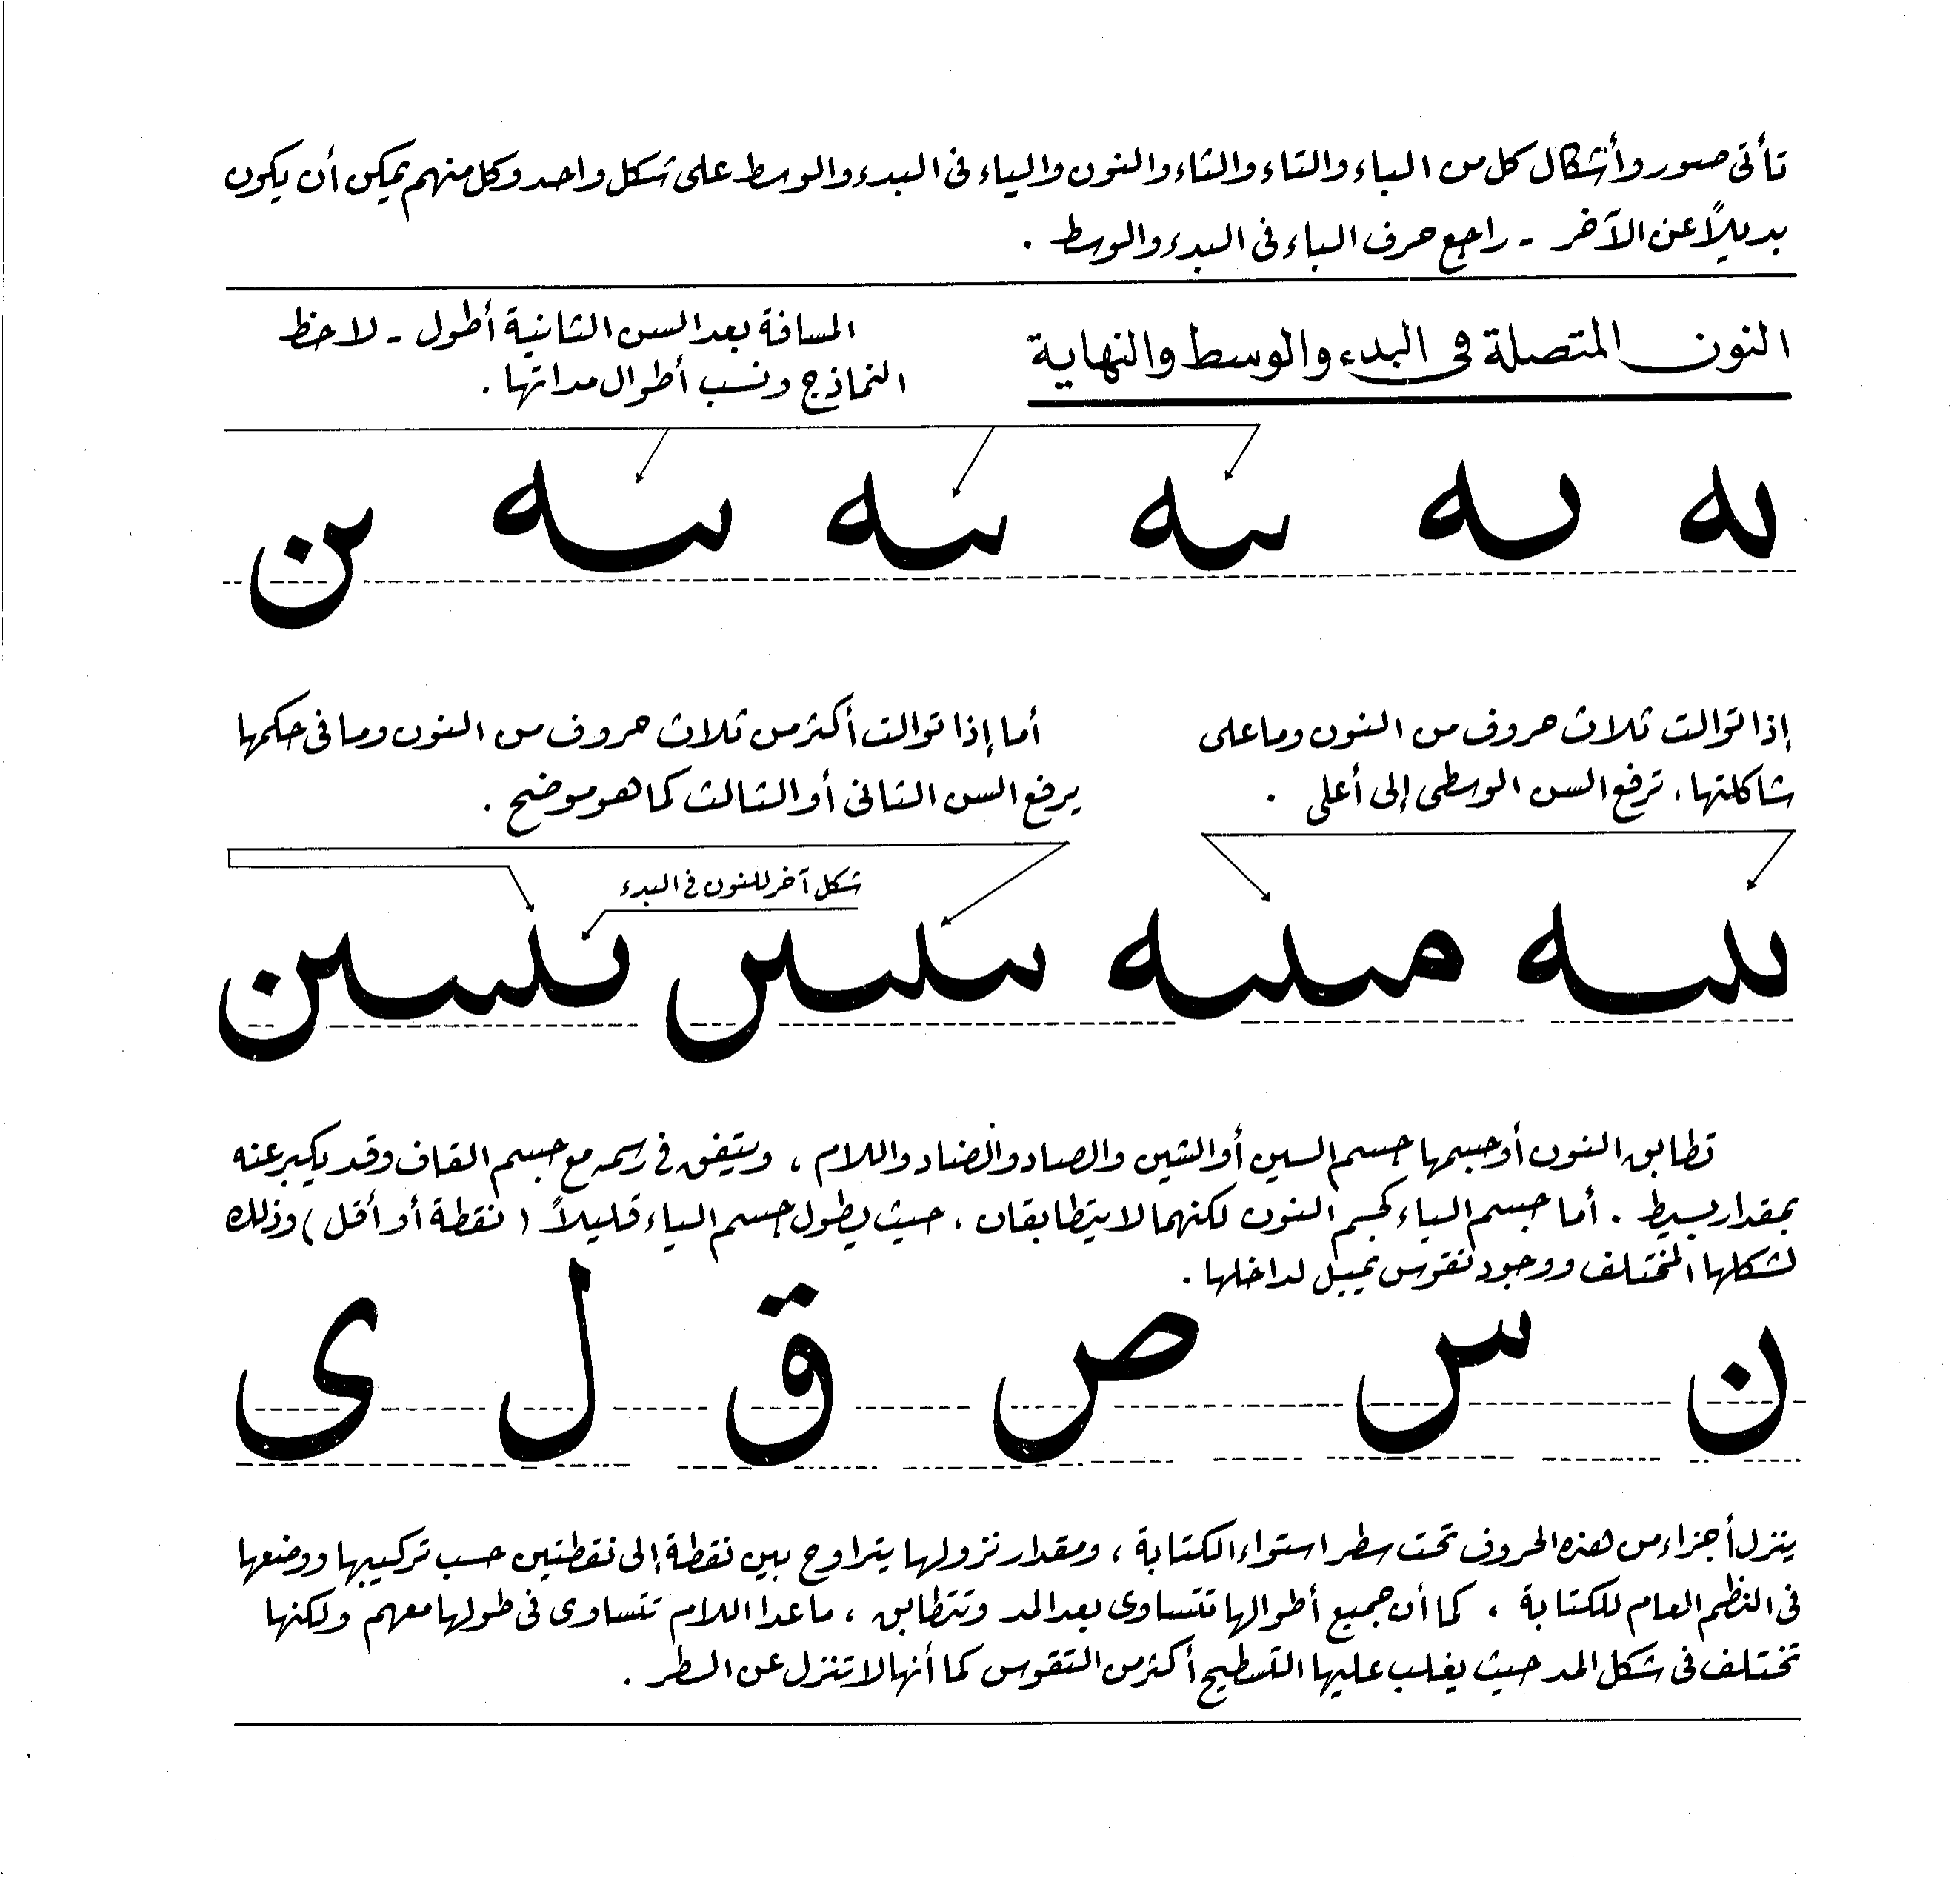 تأتى صور وأشكال كل من الباء والتاء والثاء والنون والياء فى البدء والوسط على شكل واحد وكل منهم يمكن أن يكون
بديلاً عن الآخر - راجع حرف الباء فى البدء والوسط .
النون المتصلة فى البدء والوسط والنهاية
المسافة بعد السن الثانية أطول - لاحظ
النماذج ونسب أطوال مداتها .
إذا توالت ثلاث حروف من النون وما على
شاكلتها، ترفع السن الوسطى إلى أعلى .
أما إذا توالت أكثر من ثلاث حروف من النون وما فى حكمها
يرفع السن الثانى أو الثالث كما هو موضح .
شكل آخر للنون فى البدء
تطابق النون أو جسمها جسم السين أو الشين والصاد والضاد واللام ، ويتفق فى رسمه مع جسم القاف وقد يكبر عنه
بمقدار بسيط . أما جسم الياء كجسم النون لكنهما لا يتطابقان ، حيث يطول جسم الياء قليلاً ( نقطة أو أقل ) وذلك
لشكلها المختلف ووجود تقوس يميل لداخلها .
ن س ص ق ل ى
ينزل أجزاء من هذه الحروف تحت سطر استواء الكتابة ، ومقدار نزولها يتراوح بين نقطة إلى نقطتين حسب تركيبها ووضعها
فى النظم العام للكتابة ، كما أن جميع أطوالها تتساوى بعد المد وتتطابق ، ما عدا اللام تتساوى فى طولها معهم ولكنها
تختلف فى شكل المد حيث يغلب عليها التسطيح أكثر من التقوس كما أنها لا تنزل عن السطر .